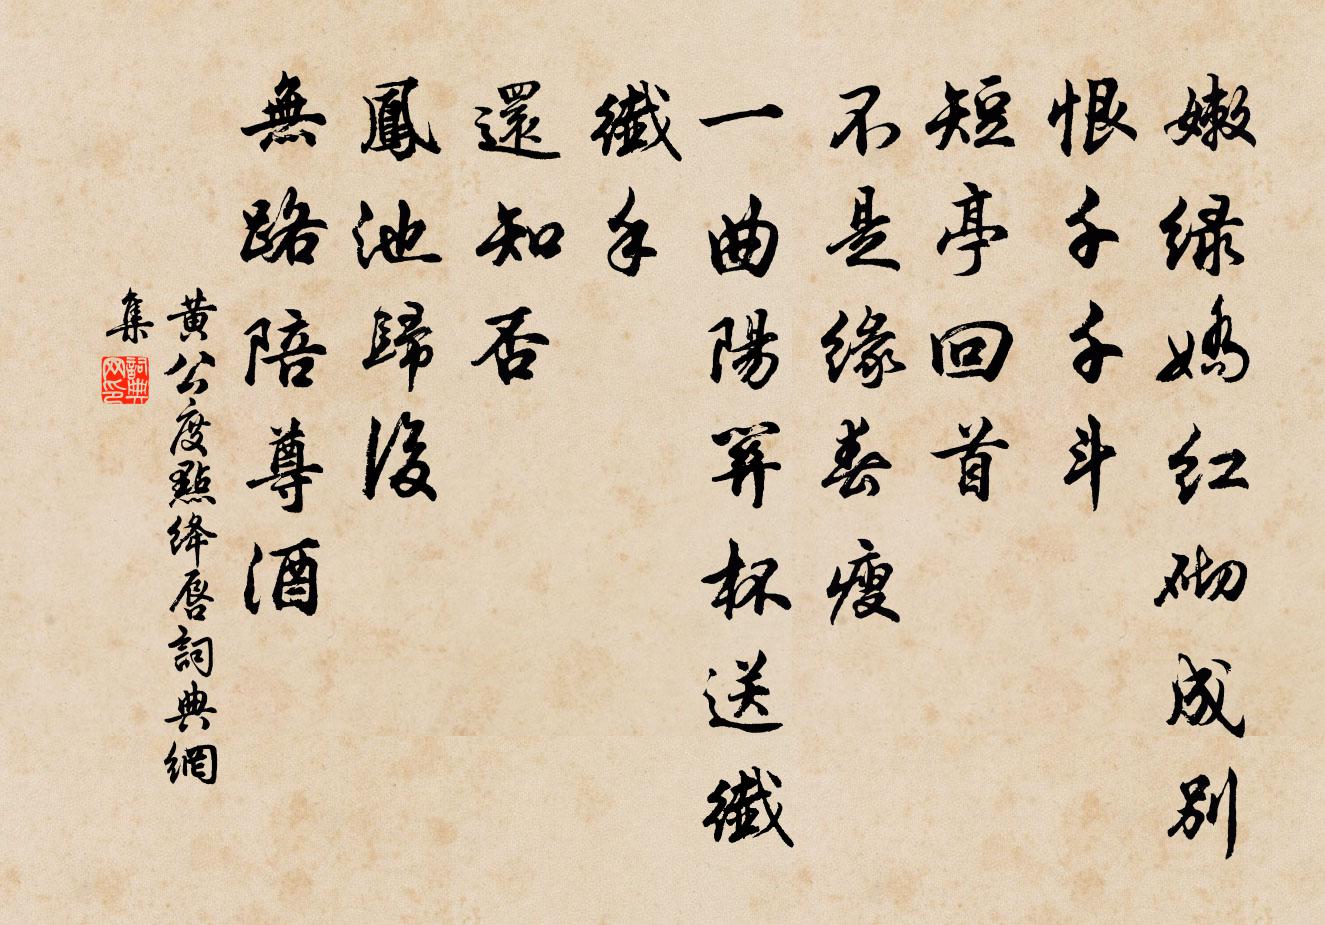 嫩绿嬌红砌成别
恨千千斗
短亭回首
不是缘春瘦
一曲陽關杯送纖
纖手
還知否
鳳池歸後
無路陪尊酒
黄公度點絳唇詞典網
集
詞典网印